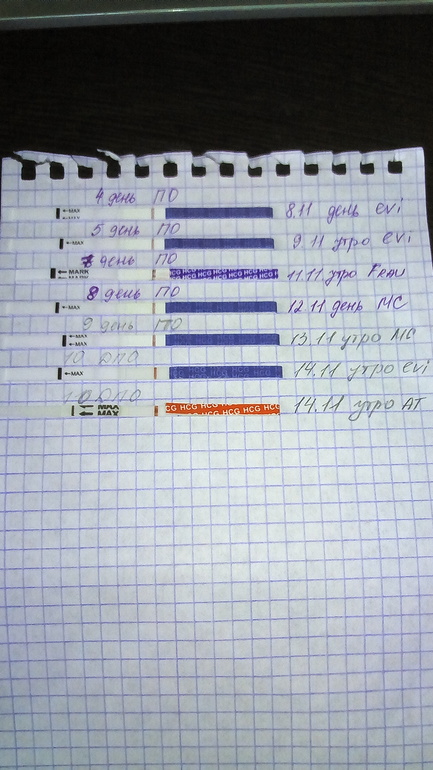 4 день ПО
←MAX 8.11 день evi
5 день ПО
←MAX 9.11 утро evi
7 день ПО
←MARK HCG HCG HCG HCG HCG 11.11 утро Frau
8 день ПО
←MAX 12.11 день МС
9 день ПО
←MAX
←MAX 13.11 утро МС
10 ДПО
←MAX 14.11 утро evi
10 ДПО
←MAX
←MAX CG HCG HCG HCG HCG 14.11 утро АТ